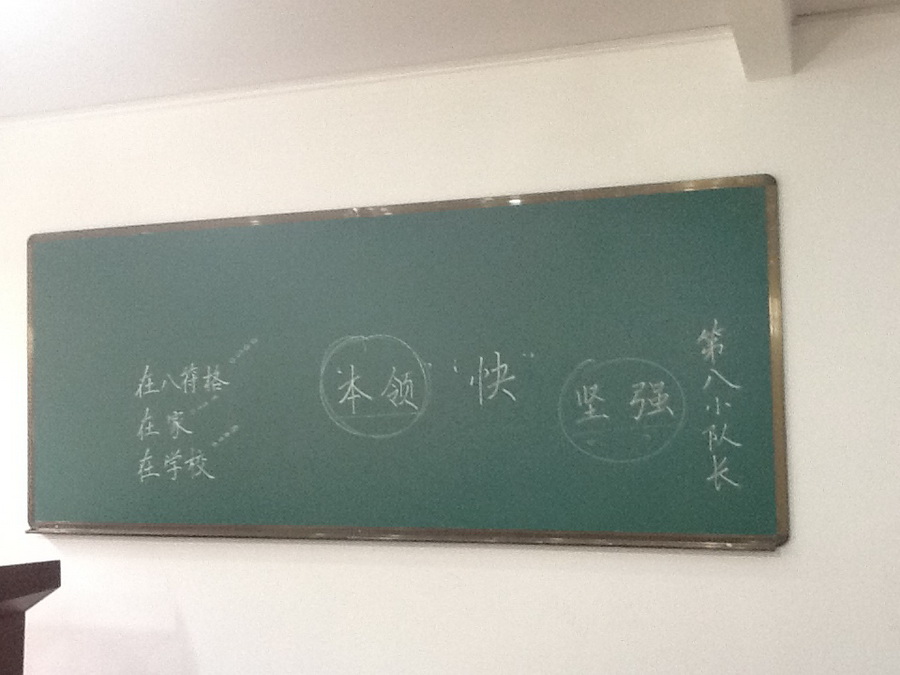 在八脊格
在家
在学校
“本领”
“快”
坚强
第八小队长